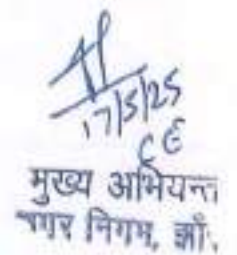 17/5/25
CE
मुख्य अभियन्त
नगर निगम, झाँ.